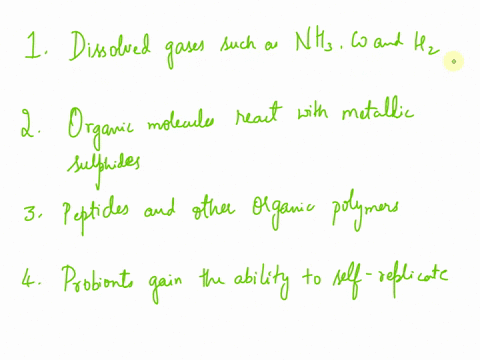 1. Dissolved gases such as NH3, CO and H2
2. Organic molecules react with metallic
sulphides
3. Peptides and other organic polymers
4. Probionts gain the ability to self-replicate